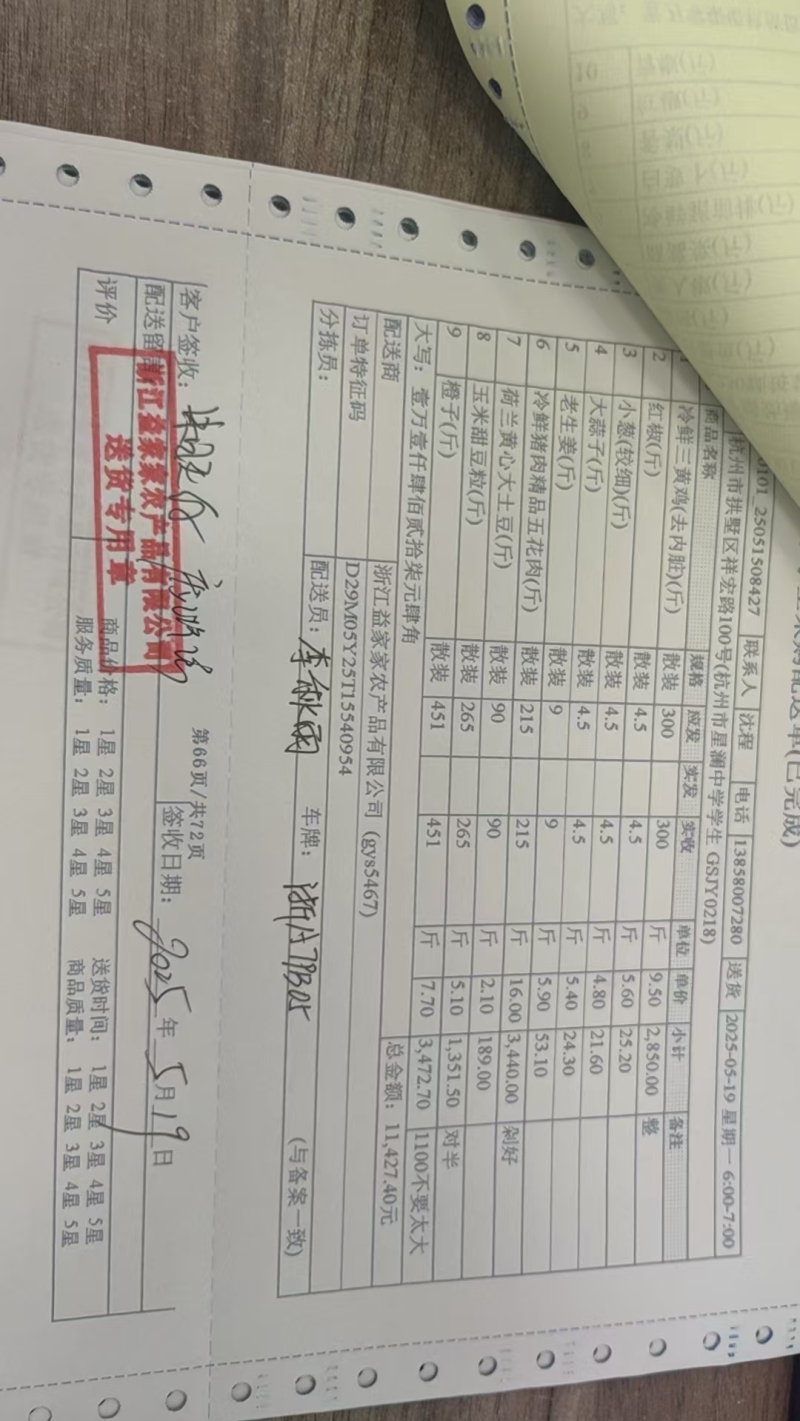 配送单(已完成)
0101_25051508427 联系人 沈程 电话 13858007280 送货 2025-05-19 星期一 6:00-7:00
杭州市拱墅区祥宏路100号(杭州市星澜中学学生 GSJY0218)
商品名称 规格 应发 实发 实收 单位 单价 小计 备注
1 冷鲜三黄鸡(去内脏)(斤) 散装 300 300 斤 9.50 2,850.00 整
2 红椒(斤) 散装 4.5 4.5 斤 5.60 25.20
3 小葱(较细)(斤) 散装 4.5 4.5 斤 4.80 21.60
4 大蒜子(斤) 散装 4.5 4.5 斤 5.40 24.30
5 老生姜(斤) 散装 9 9 斤 5.90 53.10
6 冷鲜猪肉精品五花肉(斤) 散装 215 215 斤 16.00 3,440.00 剁好
7 荷兰黄心大土豆(斤) 散装 90 90 斤 2.10 189.00
8 玉米甜豆粒(斤) 散装 265 265 斤 5.10 1,351.50 对半
9 橙子(斤) 散装 451 451 斤 7.70 3,472.70 1100不要太大
大写: 壹万壹仟肆佰贰拾柒元肆角 总金额: 11,427.40元
配送商 浙江益家家农产品有限公司 (gys5467)
订单特征码 D29M05Y25T15540954
分拣员: 配送员: 车牌: (与备案一致)
第66页/共72页
客户签收: 签收日期: 2025年5月19日
配送留言
评价 商品价格: 1星 2星 3星 4星 5星 送货时间: 1星 2星 3星 4星 5星
服务质量: 1星 2星 3星 4星 5星 商品质量: 1星 2星 3星 4星 5星
浙江益家家农产品有限公司
送货专用章